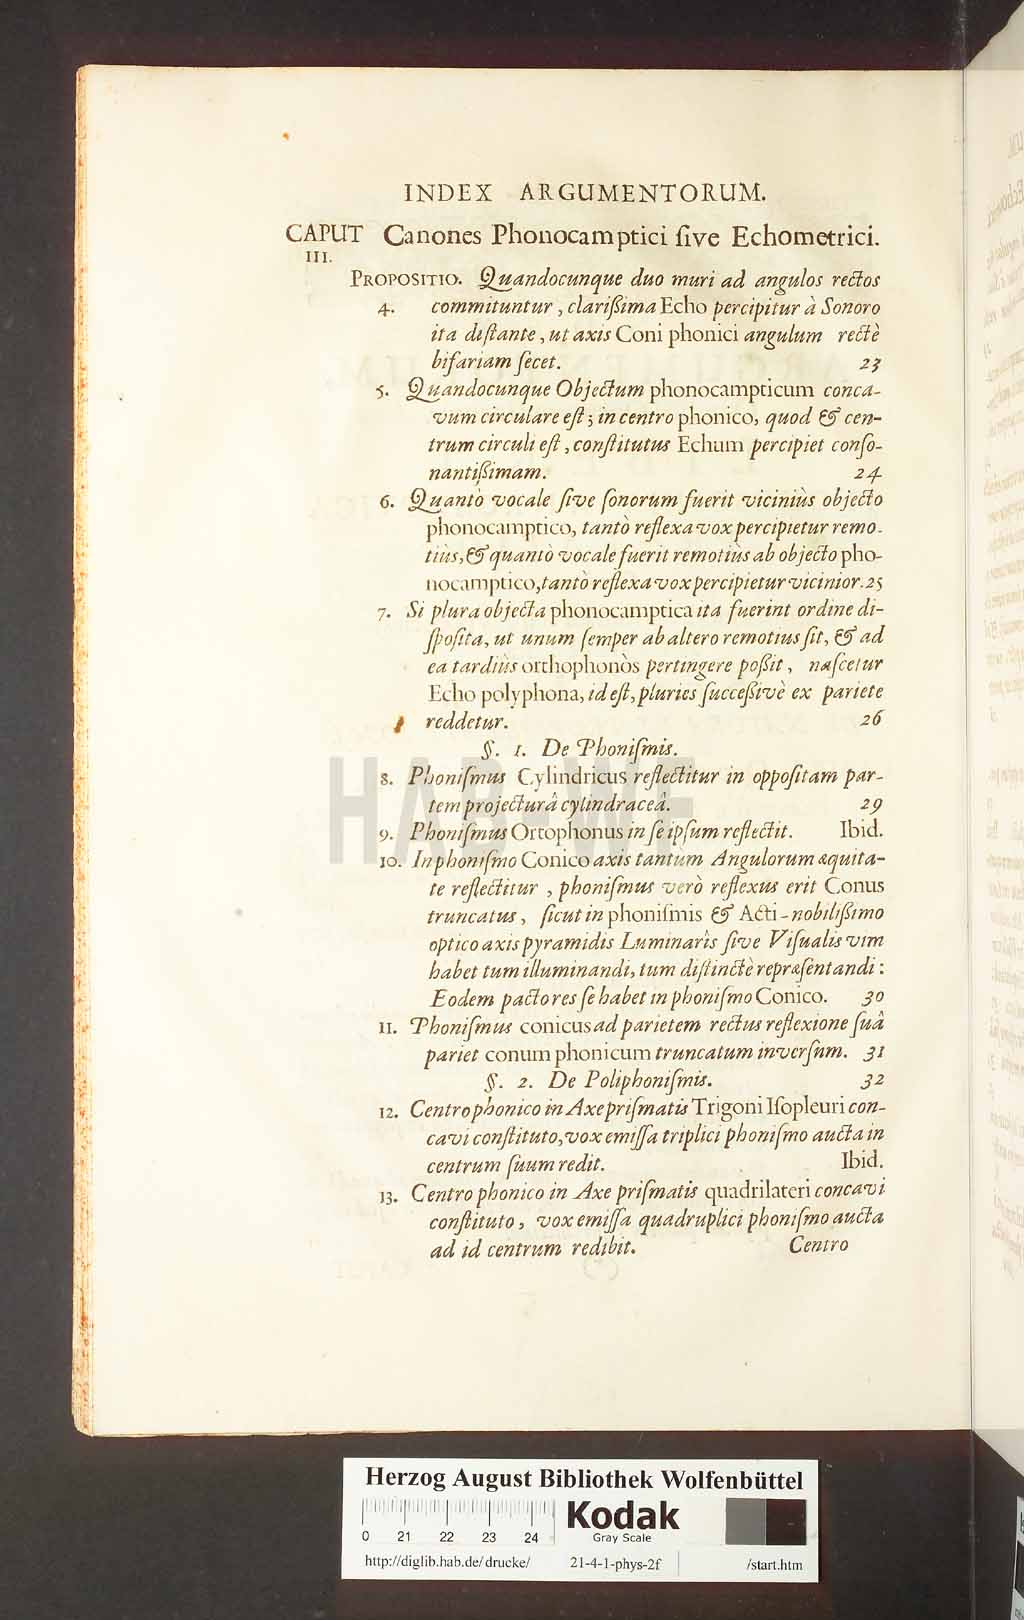 INDEX ARGUMENTORUM.
CAPUT Canones Phonocamptici ſive Echometrici.
III.
PROPOSITIO. Quandocunque duo muri ad angulos rectos
4. commituntur, clarißima Echo percipitur à Sonoro
ita diſtante, ut axis Coni phonici angulum rectè
bifariam ſecet. 23
5. Quandocunque Objectum phonocampticum conca-
vum circulare eſt; in centro phonico, quod & cen-
trum circuli eſt, conſtitutus Echum percipiet conſo-
nantißimam. 24
6. Quantò vocale ſive ſonorum fuerit viciniùs objecto
phonocamptico, tantò reflexa vox percipietur remo-
tiùs, & quantò vocale fuerit remotiùs ab objecto pho-
nocamptico, tantò reflexa vox percipietur vicinior. 25
7. Si plura objecta phonocamptica ita fuerint ordine di-
ſpoſita, ut unum ſemper ab altero remotius ſit, & ad
ea tardiùs orthophonòs pertingere poßit, naſcetur
Echo polyphona, id eſt, pluries ſucceßivè ex pariete
reddetur. 26
§. 1. De Phoniſmis.
8. Phoniſmus Cylindricus reflectitur in oppoſitam par-
tem projecturâ cylindraceâ. 29
9. Phoniſmus Ortophonus in ſe ipſum reflectit. Ibid.
10. In phoniſmo Conico axis tantum Angulorum æquita-
te reflectitur, phoniſmus verò reflexus erit Conus
truncatus, ſicut in phoniſmis & Acti-nobilißimo
optico axis pyramidis Luminaris ſive Viſualis vim
habet tum illuminandi, tum diſtinctè repræſentandi:
Eodem pacto res ſe habet in phoniſmo Conico. 30
11. Phoniſmus conicus ad parietem rectus reflexione ſuâ
pariet conum phonicum truncatum inverſum. 31
§. 2. De Poliphoniſmis. 32
12. Centro phonico in Axe priſmatis Trigoni Iſopleuri con-
cavi conſtituto, vox emiſſa triplici phoniſmo aucta in
centrum ſuum redit. Ibid.
13. Centro phonico in Axe priſmatis quadrilateri concavi
conſtituto, vox emiſſa quadruplici phoniſmo aucta
ad id centrum redibit. Centro
HAB-WF
Herzog August Bibliothek Wolfenbüttel
0 21 22 23 24
Kodak
Gray Scale
http://diglib.hab.de/drucke/ 21-4-1-phys-2f /start.htm